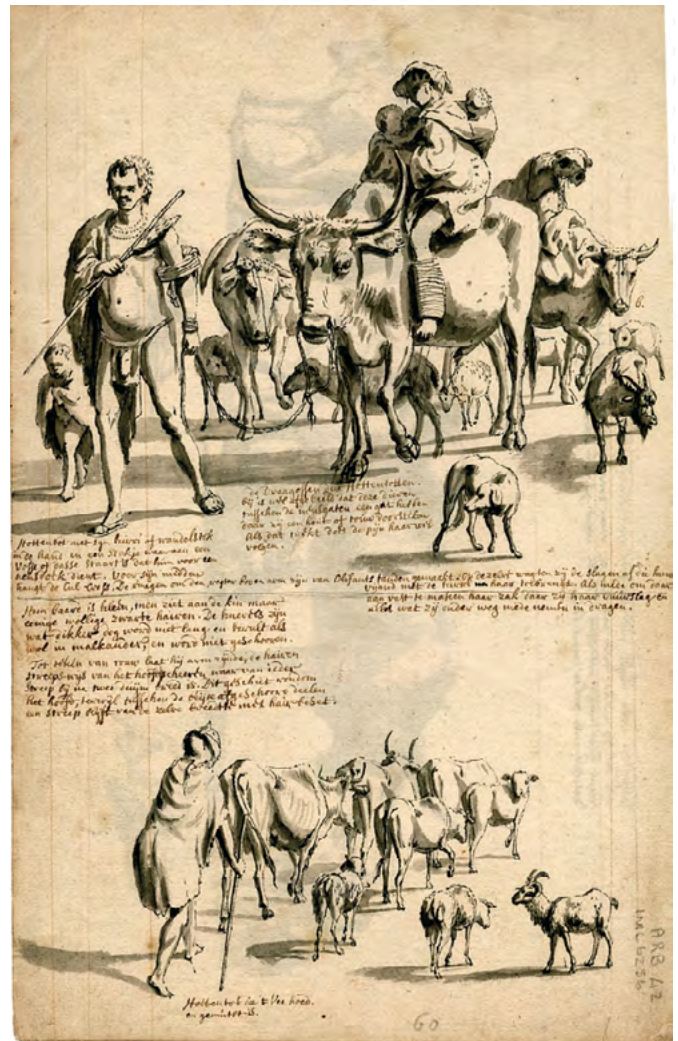 de Draagossen der Hottentotten.
bij is wel afgebeeld dat deze dieren
tusschen de neusgaten een gat hebben
daar zij een hout of touw doorsteken
Als dat rukt doet de pijn haar
volgen.
Hottentot met zijn of wandelstok
in de hand en een stokje waar aan een
Vosse of dasse staart is dat hem voor een
neusdoek dient. Voor zijn midden
hangt de Cul Cros. De ringen om den arm zijn van Olifants tanden gemaakt. Op dezelve vangen zij de slagen of die hun
vijand met de haar toebrengt. Als mede om daar
aan vast te maken haar zak daar zij haar vuurslag en
alles wat zij onder weg mede nemen in dragen.
Hun baard is klein, men ziet aan de kin maar
eenige wollige zwarte hairen. De knevels zijn
wat dikker dog word niet lang en krult als
wol in malkander, en word niet geschooren.
Tot teken van rouw laat hij de hairen
streepswijs van het hoofd scheeren waar van ieder
streep bij de twee duijm breed is. Dit geschiet rondom
het hoofd, terwijl tusschen de afgeschoore deelen
een streep blijft van de zelve breedte met hair bezet.
6.
Hottentot die t Vee hoed.
en is.
60
ARB 42